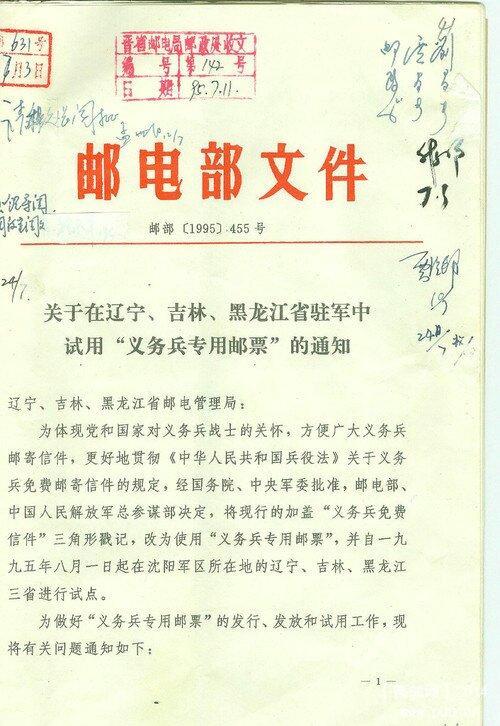 631号
晋省邮电局邮政处收文
编 号 第142号
日 期 95.7.11.
邮电部文件
邮部〔1995〕455号
关于在辽宁、吉林、黑龙江省驻军中
试用“义务兵专用邮票”的通知
辽宁、吉林、黑龙江省邮电管理局：
为体现党和国家对义务兵战士的关怀，方便广大义务兵
邮寄信件，更好地贯彻《中华人民共和国兵役法》关于义务
兵免费邮寄信件的规定，经国务院、中央军委批准，邮电部、
中国人民解放军总参谋部决定，将现行的加盖“义务兵免费
信件”三角形戳记，改为使用“义务兵专用邮票”，并自一九
九五年八月一日起在沈阳军区所在地的辽宁、吉林、黑龙江
三省进行试点。
为做好“义务兵专用邮票”的发行、发放和试用工作，现
将有关问题通知如下：
—1—